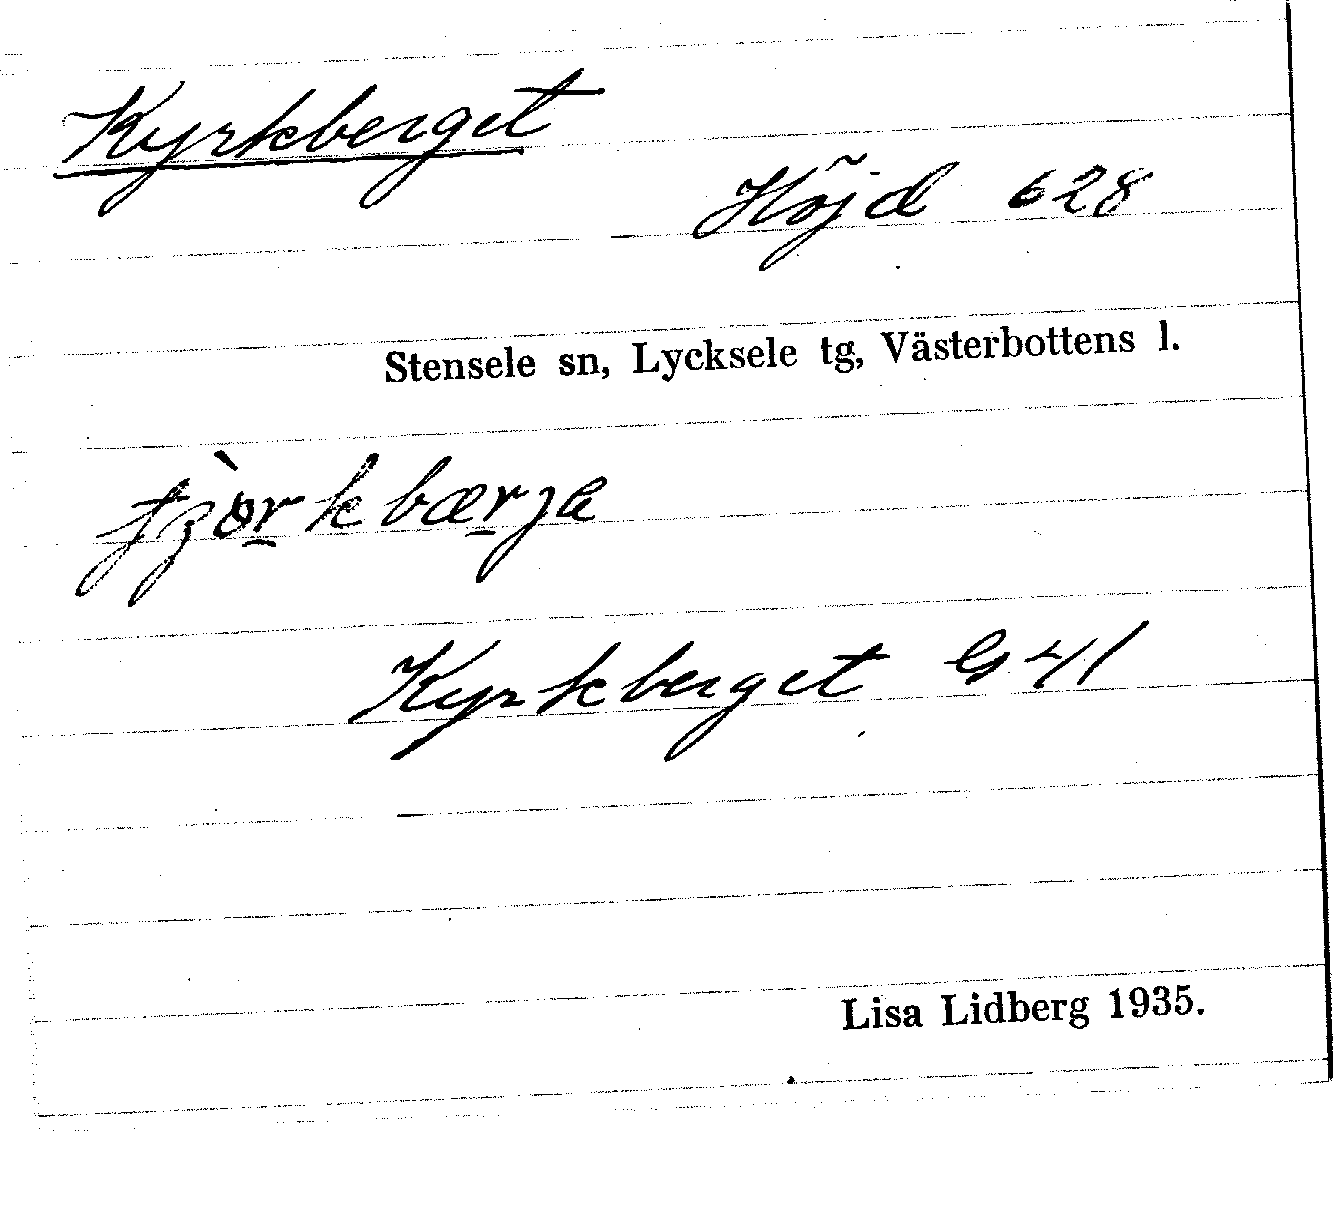 Kyrkberget
Höjd 628
Stensele sn, Lycksele tg, Västerbottens l.
Kyrkberget G 41
Lisa Lidberg 1935.